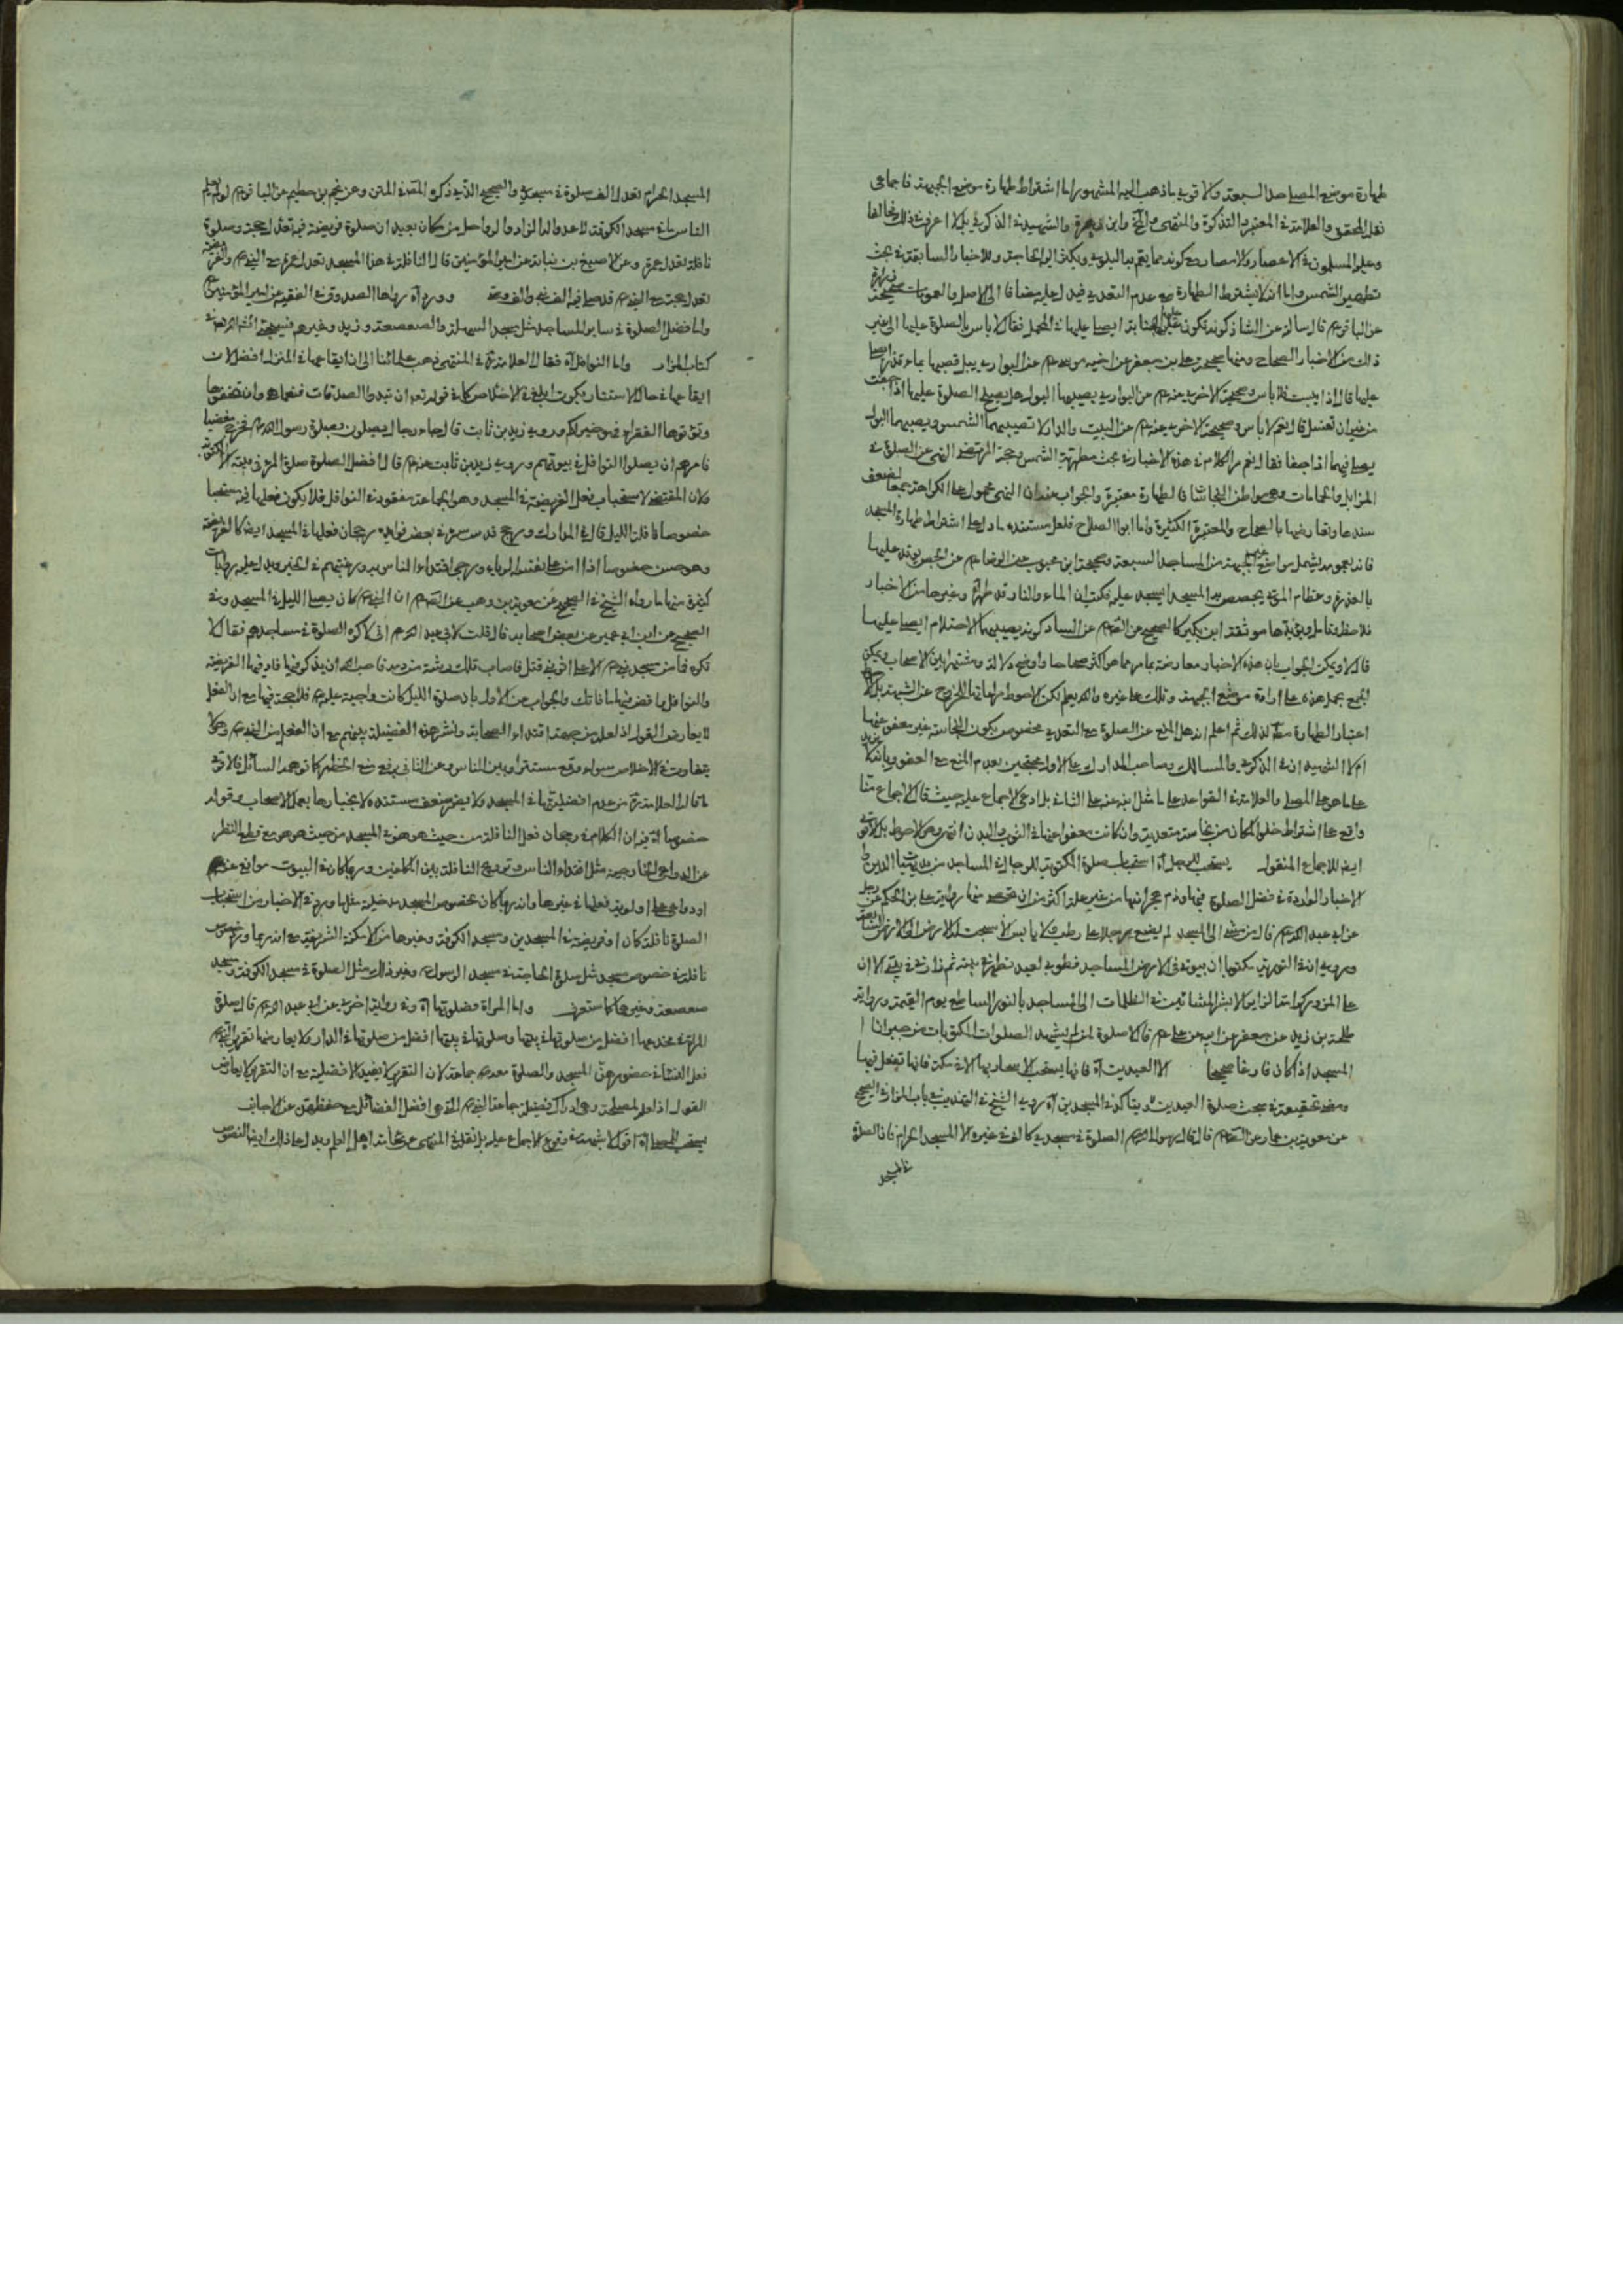 طهارة موضع المصلى المساجد السبعة ولا قريب ما ذهب اليه المشهور اما اشتراط طهارة موضع الجبهة فاجماعى
نقل المحقق والعلامة في المعتبر والتذكرة والمنتهى وابن زهرة والشهيد في الذكرى
وعليه المسلمون في الاعصار والامصار مع كونه مما يعم به البلوى ويكثر اليه الحاجة وللاخبار السابقة في بحث
تطهير الشمس واما انه لا يشترط الطهارة مع عدم التعدى فيدل عليه مضافا الى الاصل والعمومات صحيحة زرارة
عن الباقر عم قال سالته عن الشاذكونة تكون عليها الجنابة ايصلى عليها في المحمل فقال لا باس بالصلوة عليها الى غير
ذلك من الاخبار الصحاح ومنها صحيحة على بن جعفر عن اخيه موسى عم عن البوارى يبل قصبها بماء قذر ايصلى
عليها قال اذا يبست فلا باس وصحيحته الاخرى عنه عم عن البوارى يصيبها البول هل يصلح الصلوة عليها اذا جفت
من غير ان تغسل قال نعم لا باس وصحيحته الاخرى عنه عم عن البيت والدار لا تصيبهما الشمس ويصيبهما البول
يصلى فيهما اذا جفا فقال نعم مر الكلام في هذه الاخبار في بحث مطهرية الشمس وحجة المرتضى النهى عن الصلوة في
المزابل والحمامات وهى مواطن النجاسة فالطهارة معتبرة والجواب عنه ان النهى محمول على الكراهة جمعا لضعف
سندها وتعارضها بالصحاح والمعتبرة الكثيرة واما ابو الصلاح فلعل مستنده ما دل على اشتراط طهارة المسجد
فانه بعمومه يشمل مواضع غير الجبهة من المساجد السبعة وصحيحة ابن محبوب عن الرضا عم عن الجص يوقد عليها
بالعذرة وعظام الموتى يجصص به المسجد ايسجد عليه فكتب ان الماء والنار قد طهراه وغيرها من الاخبار
فلاحظ وتامل ويؤيدها موثقة ابن بكير كالصحيح عن الصادق عم عن الشاذكونة يصيبها الاحتلام ايصلى عليها
قال لا ويمكن الجواب بان هذه الاخبار معارضة بما مر مما هو اكثر صحاحا واوضح دلالة ومشتهرا بين الاصحاب ويمكن
الجمع بحمل هذه على ارادة موضع الجبهة وتلك على غيره والله يعلم لكن الاحوط مراعاتها للخروج عن الشبهة
اعتبار الطهارة مطلقا لذلك ثم اعلم انه هل المنع عن الصلوة مع التعدى مخصوص بكون النجاسة غير معفو عنها
ام لا الشهيدان في الذكرى والمسالك وصاحب المدارك على الاول محتجين بعدم المنع مع العفو وبانه لا يزيد
على ما هو على المصلى والعلامة في القواعد على ما نقل ابنه عنه على الثانى بل ادعى الاجماع عليه حيث قال الاجماع منا
واقع على اشتراط خلو المكان من نجاسة متعدية وان كانت معفوا عنها في الثوب والبدن انتهى وهو الاحوط بل الاقوى
ايضا للاجماع المنقول يستحب للرجل آه استحباب صلوة المكتوبة للرجال في المساجد من بديهيات الدين
الاخبار الواردة في فضل الصلوة فيها وذم هجرانها من غير علة اكثر من ان تحصى منها رواية على بن الحكم عن رجل
عن ابى عبد الله عم قال من مشى الى المسجد لم يضع رجلا على رطب ولا يابس الا سبحت له الارض الى الارض السابعة
وروى ان في التورية مكتوبا ان بيوتى في الارض المساجد فطوبى لعبد تطهر في بيته ثم زارنى في بيتى الا ان
على المزور كرامة الزائر الا بشر المشائين في الظلمات الى المساجد بالنور الساطع يوم القيمة ورواية
طلحة بن زيد عن جعفر عن ابيه عن على عم قال لا صلوة لمن لم يشهد الصلوات المكتوبات من جيران
المسجد اذ كان فارغا صحيحا الا العيدين آه فانها يستحب الاصحار بها الا في مكة فانها تفعل فيها
ومضى تحقيقه في بحث صلوة العيدين ويتاكد في المسجدين آه روى الشيخ في التهذيب في باب المزار في الصحيح
عن معوية بن عمار عن الصادق عم قال قال رسول الله صم الصلوة في مسجدى كالف في غيره الا المسجد الحرام فان الصلوة
في المسجد
المسجد الحرام تعدل الف صلوة في مسجدى والصحيح الذى ذكره المصنف في المتن وعن نجم بن حطيم عن الباقر عم لو يعلم
الناس ما في مسجد الكوفة لاعدوا له الزاد والرواحل من مكان بعيد ان صلوة فريضة فيه تعدل حجة وصلوة
نافلة تعدل عمرة وعن الاصبغ بن نباتة عن امير المؤمنين قال النافلة في هذا المسجد تعدل عمرة مع النبى صم والفريضة
تعدل حجة مع النبى صم قد صلى فيه الف نبى والف وصى وورد آه رواها الصدوق في الفقيه عن امير المؤمنين عم
واما فضل الصلوة في ساير المساجد مثل مسجد السهلة والصعصعة وزيد وغيرهم فسيجئ انشاء الله تعالى في
كتاب المزار واما النوافل آه فقال العلامة في المنتهى ذهب علمائنا الى ان ايقاعها في المنزل افضل لان
ايقاعها في حال الاستتار يكون ابلغ في الاخلاص كما في قوله تعالى ان تبدوا الصدقات فنعما هى وان تخفوها
وتؤتوها الفقراء فهو خير لكم وروى زيد بن ثابت قال جاء رجال يصلون بصلوة رسول الله صم فخرج مغضبا
فامرهم ان يصلوا النوافل في بيوتهم وروى زيد بن ثابت عنه صم قال افضل الصلوة صلوة المرء في بيته الا المكتوبة
ولان المقتضى لاستحباب فعل الفريضة في المسجد وهو الجماعة مفقود في النوافل فلا يكون فعلها فيه مستحبا
خصوصا نافلة الليل قال في المدارك ورجح قدس سره في بعض فوائده رجحان فعلها في المسجد ايضا كالفريضة
وهو حسن خصوصا اذا امن على نفسه الرياء ورجى اقتداء الناس به ورغبتهم في الخير ويدل عليه روايات
كثيرة منها ما رواه الشيخ في الصحيح عن معوية بن وهب عن الصادق عم ان النبى صم كان يصلى الليل في المسجد وفى
الصحيح عن ابن ابى عمير عن بعض اصحابه قال قلت لابى عبد الله عم انى لاكره الصلوة في مساجدهم فقال لا
تكره فما من مسجد بنى الا على قبر نبى او وصى نبى قتل فاصاب تلك رشة من دمه فاحب الله ان يذكر فيها فاد فيها الفريضة
والنوافل واقض فيها ما فاتك والجواب عن الاول بان صلوة الليل كانت واجبة عليه صم فلا حجة فيها مع ان الفعل
لا يعارض القول اذ لعله من جهة اقتداء الصحابة ونشر هذه الفضيلة بينهم مع ان الفعل من النبى صم
يتفاوت في الاخلاص سواء وقع مستترا او بين الناس وعن الثانى برفع منع الحظر كما توهمه السائل فالاقوى
ما قاله العلامة من عدم افضليتها في المسجد ولا يضر ضعف مستنده لانجبارها بعمل الاصحاب وقوله
خصوصا آه ان الكلام في رجحان فعل النافلة من حيث هو هو في المسجد من حيث هو هو مع قطع النظر
عن الدواعى الخارجية مثل اقتداء الناس وترويج النافلة بين الخاملين وربما كان في البيوت موانع عنها
او دواعى على اولوية فعلها في غيرها وانه ربما كان بخصوص المسجد مدخلية مثل ما ورد في الاخبار من استحباب
الصلوة نافلة كان او فريضة في المسجدين ومسجد الكوفة وغيرها من الامكنة الشريفة مع انه ربما ورد بخصوص
نافلة في خصوص مسجد مثل صلوة الحاجة في مسجد الرسول صم وغير ذلك مثل الصلوة في مسجد الكوفة ومسجد
صعصعة وغيرها كما ستعرف واما المراة فصلوتها آه وفى رواية اخرى عن ابى عبد الله عم قال صلوة
المراة في مخدعها افضل من صلوتها في بيتها وصلوتها في بيتها افضل من صلوتها في الدار ولا يعارضها تقرير النبى صم
فعل النساء في حضورهن المسجد والصلوة معه صم جماعة لان التقرير لا يفيد الافضلية مع ان التقرير لا يعارض
القول اذ لعله لمصلحة وهى ادراك فضيلة جماعة النبى صم الذى هى افضل الفضائل مع حفظهن عن الاجانب
يستحب للمصلى آه اقول لا شبهة في وقوع الاجماع عليه بل نقل في المنتهى عن كافة اهل العلم ويدل على ذلك ايضا النصوص